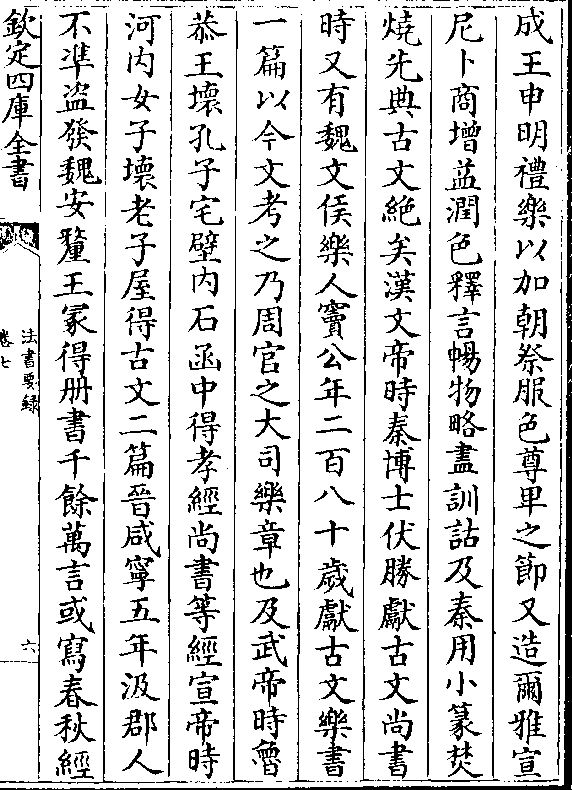 成王申明禮樂以加朝祭服色尊卑之節又造爾雅宣
尼卜商增益潤色釋言暢物略盡訓詁及秦用小篆焚
燒先典古文絶矣漢文帝時秦博士伏勝獻古文尚書
時又有魏文侯樂人竇公年二百八十歲獻古文樂書
一篇以今文考之乃周官之大司樂章也及武帝時魯
恭王壞孔子宅壁内石函中得孝經尚書等經宣帝時
河内女子壞老子屋得古文二篇晉咸寧五年汲郡人
不凖盜發魏安釐王冢得册書千餘萬言或寫春秋經
欽定四庫全書
法書要録
卷七
六